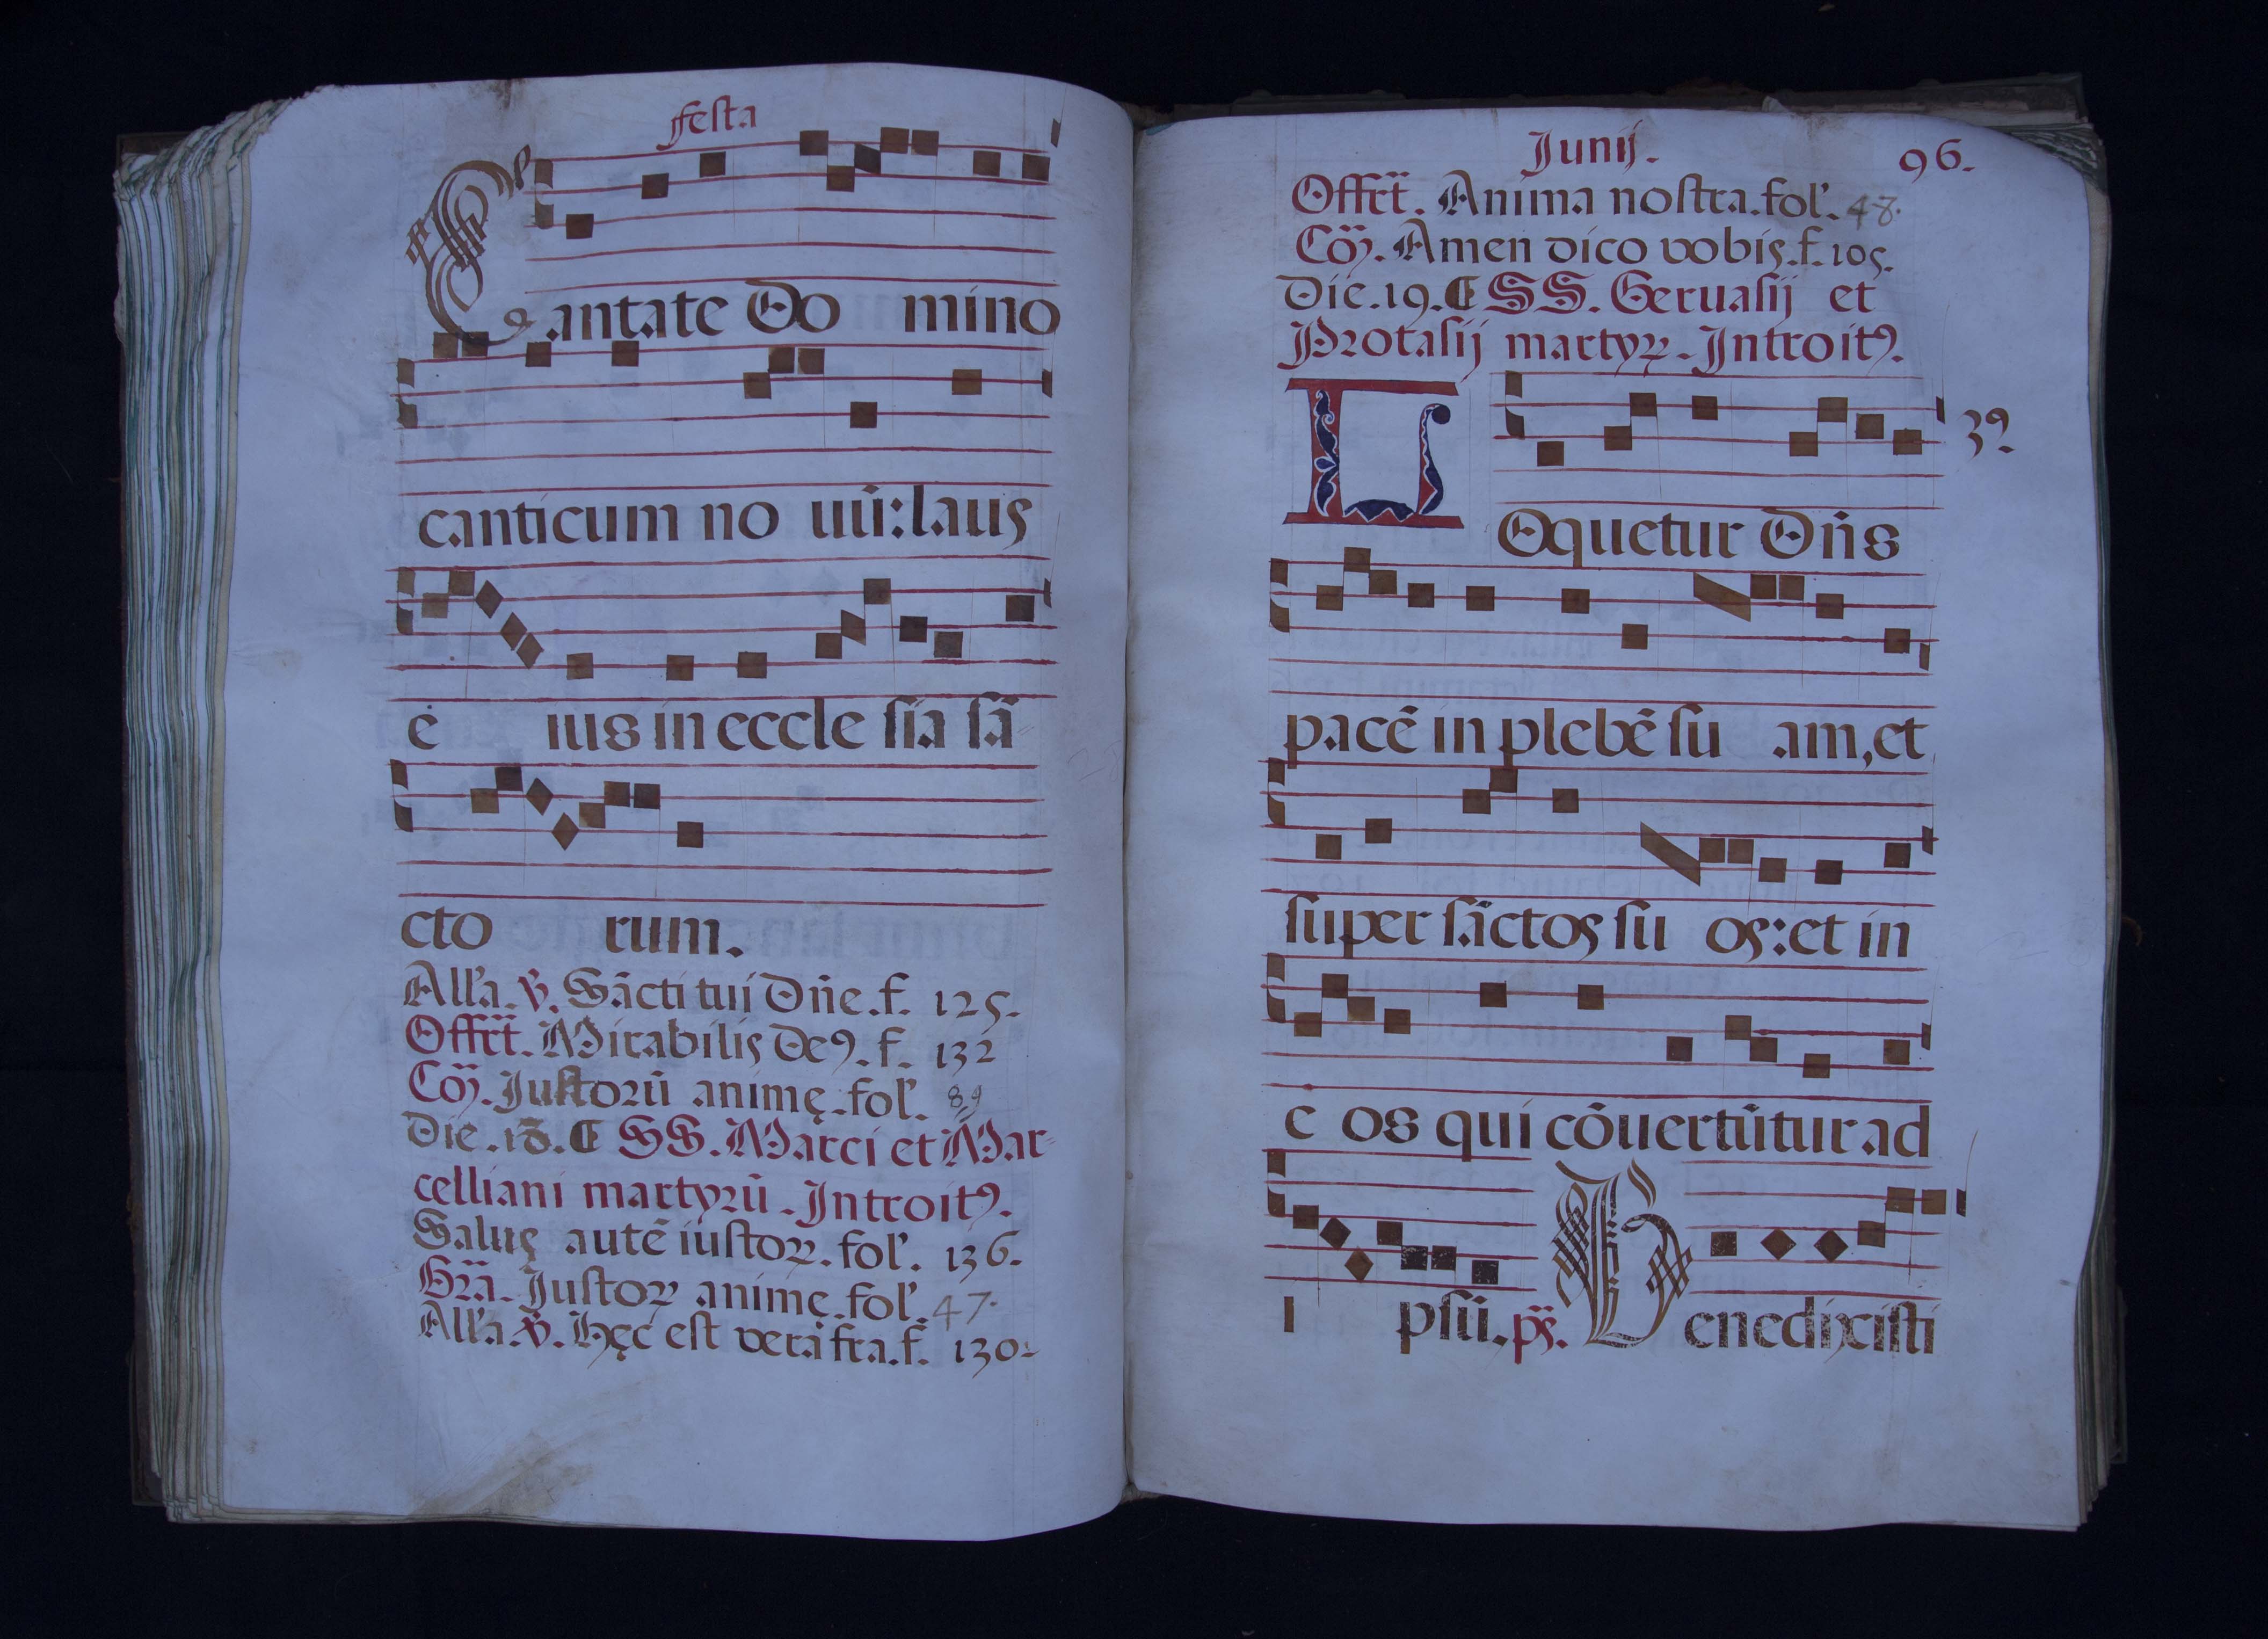 festa
Cantate Do mino
canticum no uũ: laus
e ius in eccle sia sã
cto rum.
All'a. ℣. Sãcti tui Dñe. f. 125.
Offrt̃. Mirabilis Deꝰ. f. 132
Cõ. Justorũ animę. fol'. 89
Die. 18. SS. Marci et Mar-
celliani martyrũ. Introitꝰ.
Salus autẽ iustoꝝ. fol'. 136.
Grã. Justoꝝ animę. fol'. 47.
All'a. ℣. Hęc est vera frã. f. 130.
Junij. 96.
Offrt̃. Anima nostra. fol'. 48.
Cõ. Amen dico vobis. f. 105.
Die. 19. SS. Geruasij et
Protasij martyꝝ. Introitꝰ.
LOquetur Dñs 3ꝰ.
pacẽ in plebẽ su am, et
super sãctos su os: et in
e os qui cõuertũtur ad
i psũ. ps̃. Benedixisti